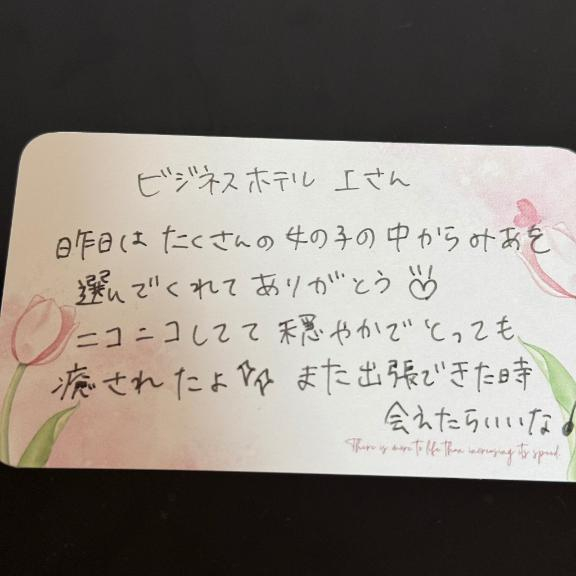 ビジネスホテル Iさん
昨日は たくさんの 女の子の 中から みあを
選んでくれて ありがとう
ニコニコしてて 穏やかで とっても
癒されたよ また出張できた時
会えたらいいな♪
There is more to life than increasing its speed.